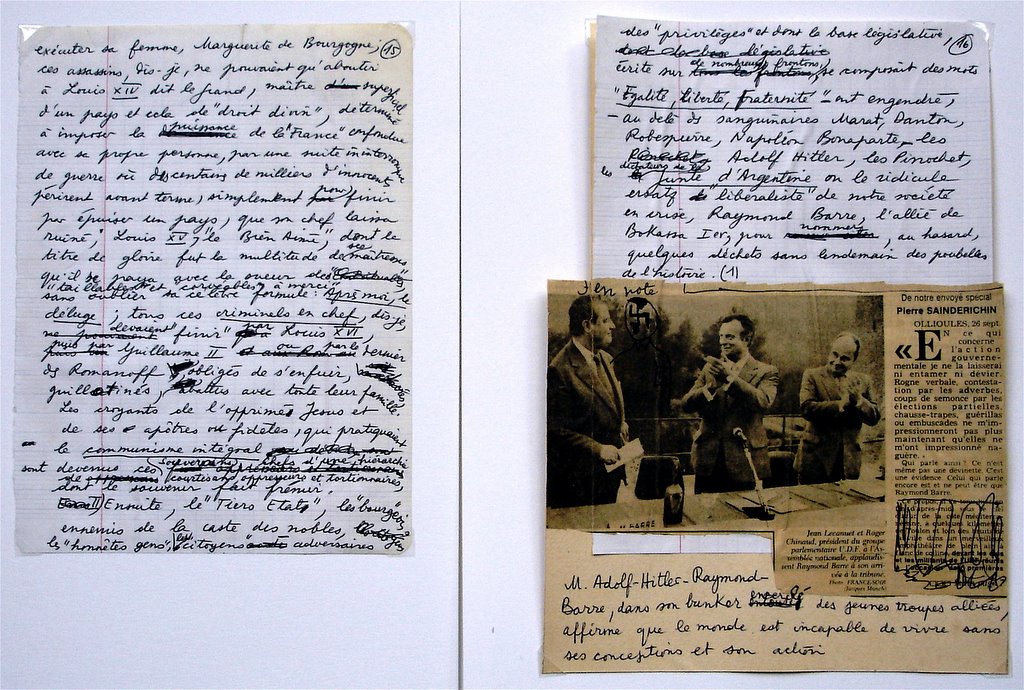 15
exécuter sa femme, Marguerite de Bourgogne,
ces assassins, dis-je, ne pouvaient qu'aboutir
à Louis XIV dit le grand, maître superficiel
d'un pays et cela de "droit divin", déterminé
à imposer la puissance de la "France" confondue
avec sa propre personne, par une suite ininterrompue
de guerre où des centaines de milliers d'innocents
périrent avant terme, simplement pour finir
par épuiser un pays, que son chef laissa
ruiné, Louis XV, "le Bien Aimé", dont le
titre de gloire fut la multitude de ses maîtresses
qu'il se paya avec la sueur des
"taillables et corvéables à merci"
sans oublier sa célèbre formule: "Après moi, le
déluge"; tous ces criminels en chef, dis-je,
ne devaient finir par Louis XVI,
puis par Guillaume II ou par le dernier
des Romanoff obligés de s'enfuir,
guillotinés, abattus avec toute leur famille.
Les croyants de l'opprimé Jesus et
de ses apôtres ou fidèles, qui pratiquaient
le communisme intégral
sont devenus ces souverains, chefs d'une hiérarchie
de courtisans oppresseurs et tortionnaires,
dont le souvenir fait frémir.
II Ensuite, le "Tiers Etats", les "bourgeois"
ennemis de la caste des nobles,
les "honnêtes gens", les "citoyens" adversaires
16
des "privilèges" et dont la base législative,
écrite sur de nombreux frontons, se composait des mots
"Egalité, liberté, fraternité" - ont engendré,
- au delà des sanguinaires Marat, Danton,
Robespierre, Napoléon Bonaparte - les
Adolf Hitler, les Pinochet,
les dictateurs de la Junte d'Argentine ou le ridicule
ersatz "libéraliste" de notre société
en crise, Raymond Barre, l'allié de
Bokassa Ier, pour nommer, au hasard,
quelques déchets sans lendemain des poubelles
de l'histoire. (1)
J'en note
De notre envoyé spécial
Pierre SAINDERICHIN
OLLIOULES, 26 sept.
« EN ce qui
concerne
l'action
gouverne-
mentale je ne la laisserai
ni entamer ni dévier.
Rogne verbale, contestation
par les adverbes,
coups de semonce par les
élections partielles,
chausse-trapes, guérillas
ou embuscades ne m'im-
pressionneront pas plus
maintenant qu'elles ne
m'ont impressionné na-
guère. »
Qui parle ainsi? Ce n'est
même pas une devinette. C'est
une évidence. Celui qui parle
encore est et ne peut être que
Raymond Barre.
M BARRE
Jean Lecanuet et Roger
Chinaud, président du groupe
parlementaire U.D.F. à l'As-
semblée nationale, applaudis-
sent Raymond Barre à son arri-
vée à la tribune.
Photo FRANCE-SOIR
M. Adolf-Hitler-Raymond-
Barre, dans son bunker encerclé des jeunes troupes alliées,
affirme que le monde est incapable de vivre sans
ses conceptions et son action